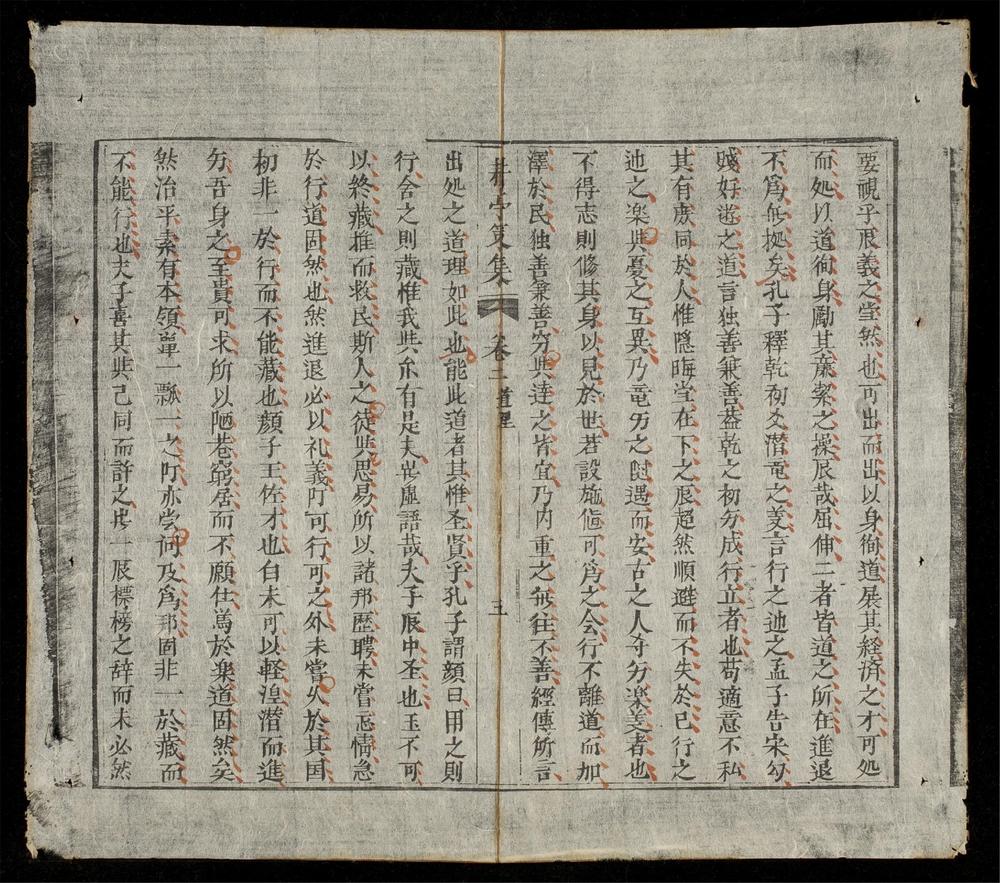 要視乎辰義之當然也可出而出以身徇道展其経済之才可処
而処以道徇身勵其亷潔之操辰哉屈伸二者皆道之所在進退
不爲無拠矣孔子釋乾初爻潜竜之㐮言行之遊之孟子告宋勾
践好遊之道言独善兼善葢乾之初分成行立者也苟適意不私
其有度同於人惟隱晦堂在下之辰超然順遯而不失於己行之
之楽与憂之互異乃竜分之時遇而安古之人夲分楽善者也
不得志則修其身以見於世若設施僃可爲之会行不離道而加
澤於民独善兼善穷与逹之皆宜乃内重之無往不善經傳所言
策集 卷二 道理 五
出処之道理如此也能此道者其惟圣賢乎孔子謂顔曰用之則
行舎之則藏惟我与尔有是夫豈虚語哉夫子辰中圣也玉不可
以終藏推而救民斯人之徒与思易所以諸邦歴聘未嘗忘情急
於行道固然也然進退必以礼義可行可之外未嘗乆於其国
初非一於行而不能藏也顔子王佐才也自未可以軽湟潜而進
分吾身之至貴可求所以陋巷窮居而不願仕焉於楽道固然矣
然治平素有本領簞一瓢一之亦尝问及爲邦固非一於藏而
不能行也夫子喜其与己同而許之一辰標榜之辞而未必然